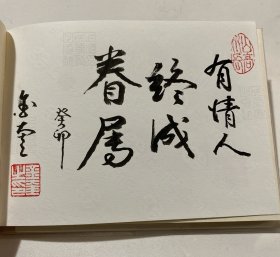 有情人
终成
眷属
癸卯